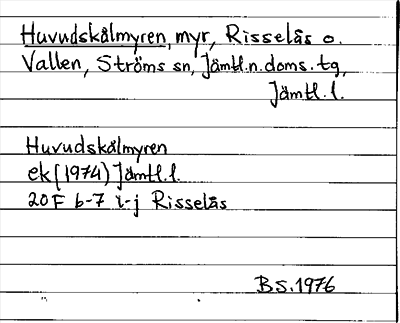 Huvudskålmyren, myr, Risselås o.
Vallen, Ströms sn, Jämtl.n.doms.tg,
Jämtl.l.
Huvudskålmyren
ek (1974) Jämtl.l.
20F 6-7 i-j Risselås
BS.1976